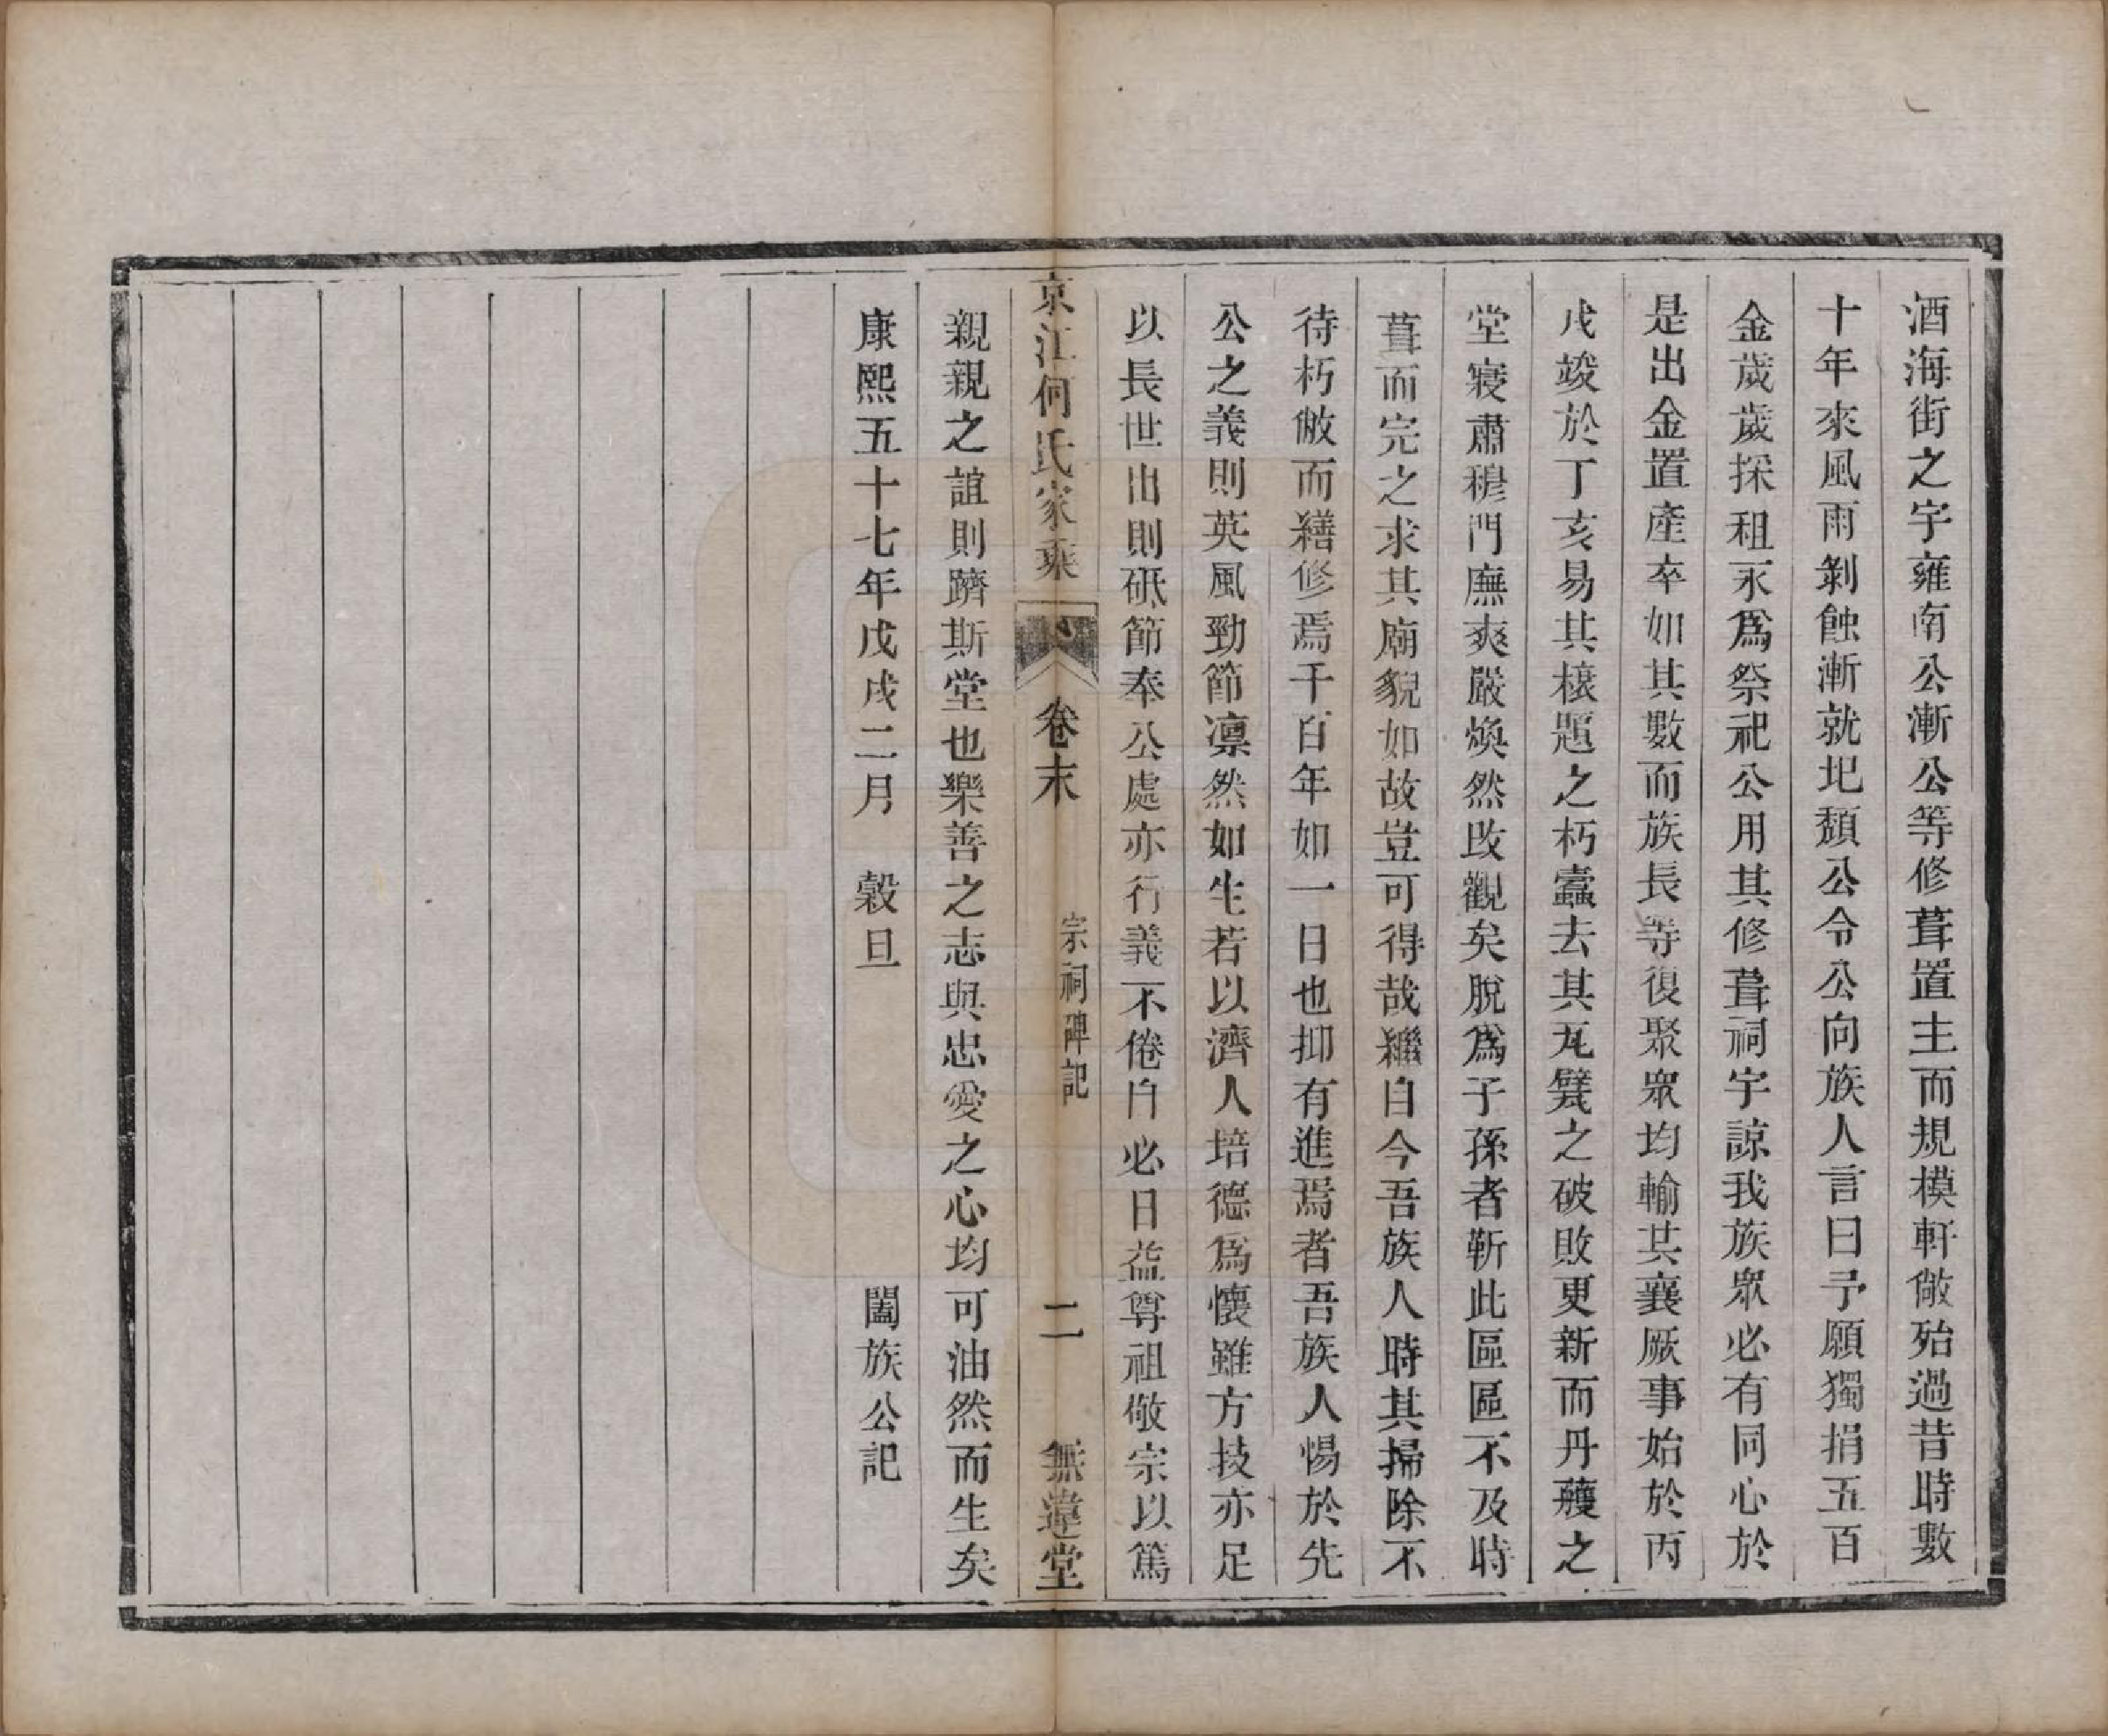 酒海街之宇雍南公漸公等修葺置主而規模軒敞殆過昔時數
十年來風雨剝蝕漸就圯頹公令公向族人言曰予願獨捐五百
金歲歲採租永爲祭祀公用其修葺祠宇諒我族眾必有同心於
是出金置產卒如其數而族長等復聚眾均輸共襄厥事始於丙
戌竣於丁亥易其榱題之朽蠹去其瓦甓之破敗更新而丹雘之
堂寢肅穆門廡爽嚴煥然改觀矣脫爲子孫者靳此區區不及時
葺而完之求其廟貌如故豈可得哉繼自今吾族人時其掃除不
待朽敝而繕修焉千百年如一日也抑有進焉者吾族人惕於先
公之義則英風勁節凛然如生若以濟人培德爲懷雖方技亦足
以長世出則砥節奉公處亦行義不倦自必日益尊祖敬宗以篤
京江何氏家乘 卷末 宗祠碑記 二 無違堂
親親之誼則躋斯堂也樂善之志與忠愛之心均可油然而生矣
康熙五十七年戊戌二月 穀旦 闔族公記